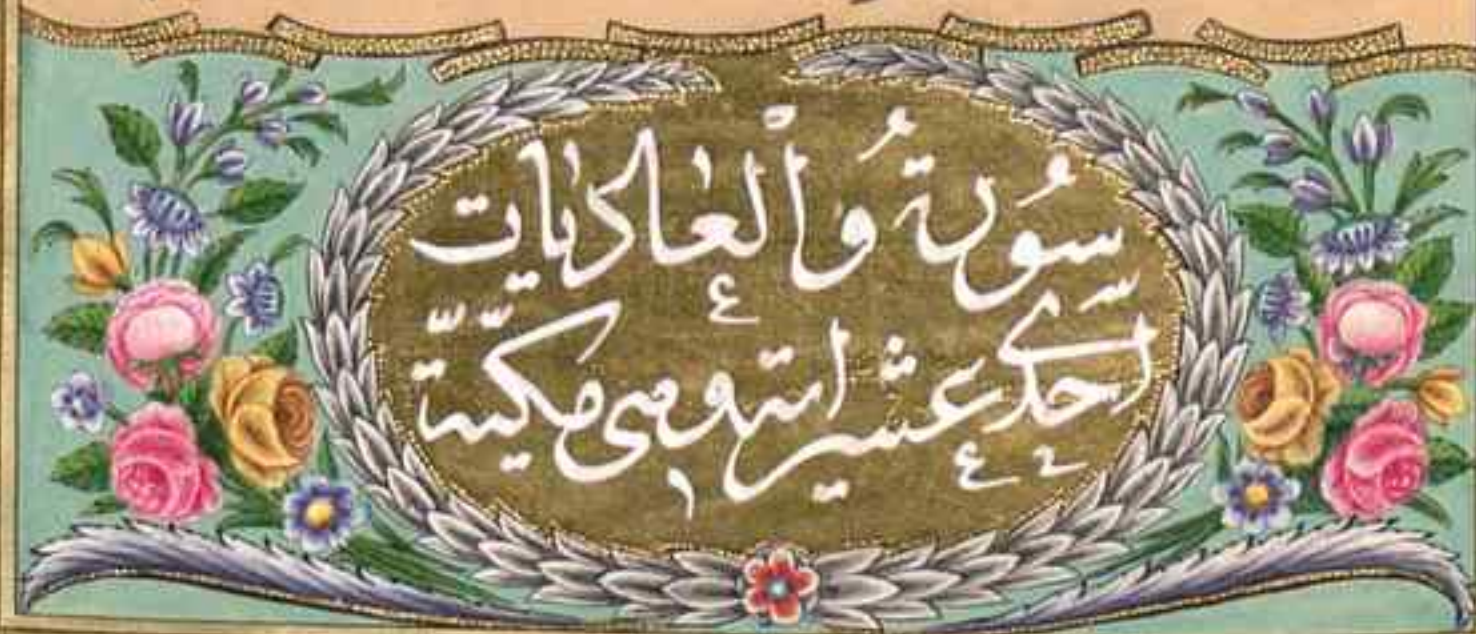 سُورة وَالْعاديات
احدى عشر اية وهى مكيّة